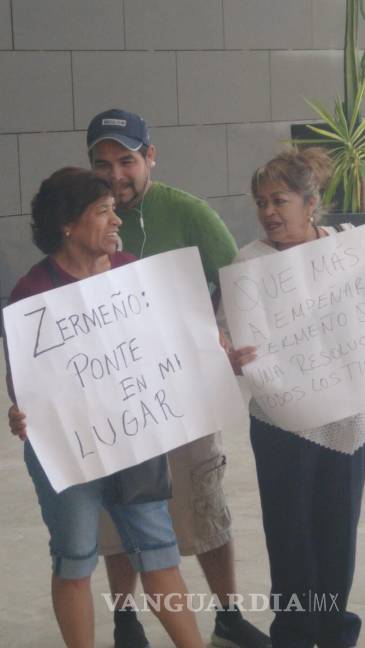 ZERMEÑO:
PONTE
EN MI
LUGAR
QUE MÁS
A EMPEÑAR
ZERMEÑO
UNA
TODOS LOS
VANGUARDIA|MX